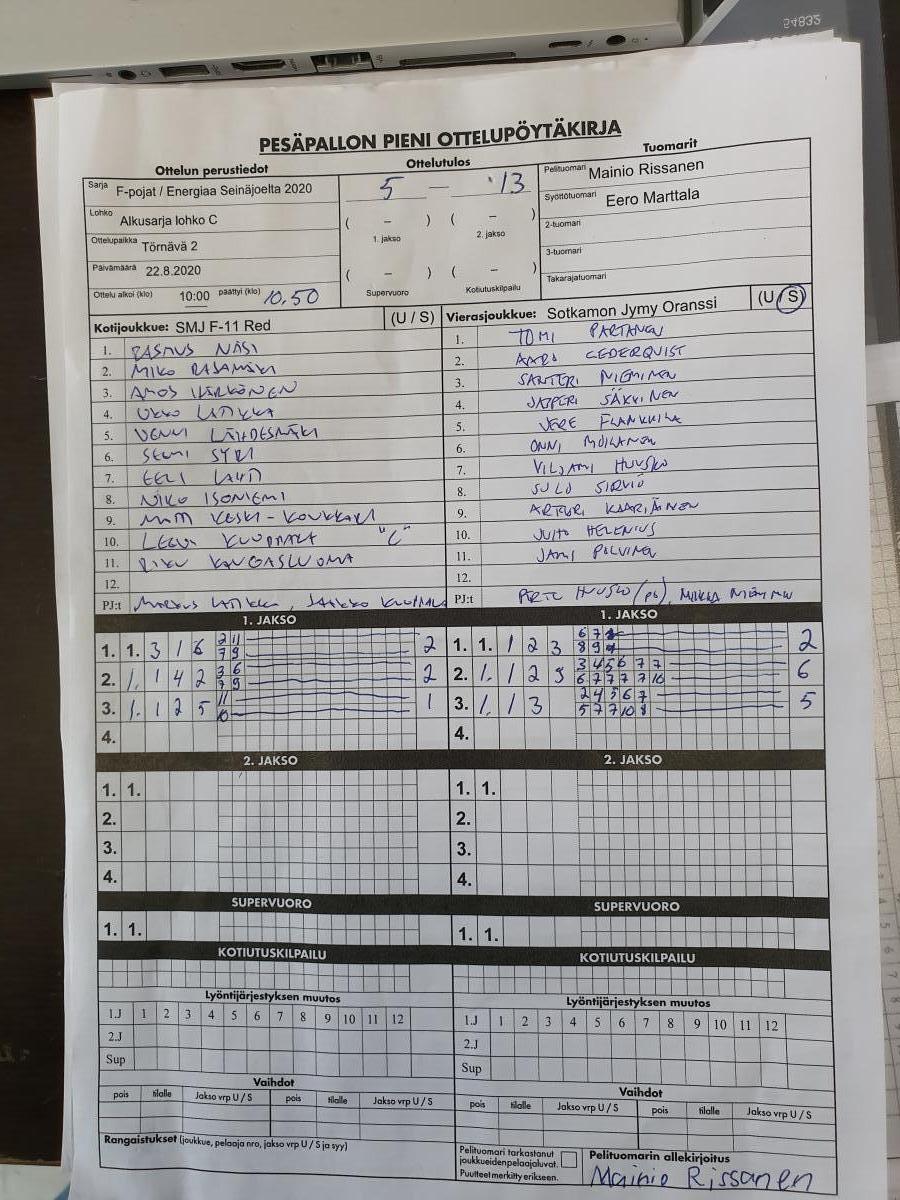 54832
PESÄPALLON PIENI OTTELUPÖYTÄKIRJA
Ottelun perustiedot
Ottelutulos
Tuomarit
Sarja F-pojat / Energiaa Seinäjoelta 2020
5 — 13
Pelituomari Mainio Rissanen
Lohko Alkusarja lohko C
( – ) ( – )
1. jakso 2. jakso
Syöttötuomari Eero Marttala
Ottelupaikka Törnävä 2
2-tuomari
Päivämäärä 22.8.2020
( – ) ( – )
Supervuoro Kotiutuskilpailu
3-tuomari
Ottelu alkoi (klo) 10:00 päättyi (klo) 10.50
Takarajatuomari
Kotijoukkue: SMJ F-11 Red (U / S)
Vierasjoukkue: Sotkamon Jymy Oranssi (U / S)
1. RASMUS NÄSI
2. MIKO RASAMÄKI
3. AMOS HÄRKÖNEN
4. UKKO LATIKKA
5. VENNI LÄHDESMÄKI
6. SEMI
7. EELI LAHTI
8. NIKO ISONIEMI
9. MATTI KESKI-KOUKKARI
10. LEEVI "C"
11. RIKU KANGASLUOMA
12.
PJ:t Markus Latikka, Jaakko
1. TOMI PARTANEN
2. AARO CEDERQUIST
3. SANTERI NIEMINEN
4. JASPERI SÄKKINEN
5. VERE FLANKKILA
6. ONNI MOILANEN
7. VILJAMI HUUSKO
8. SULO SIRVIÖ
9. ARTTURI KAARIAINEN
10. JUHO HELENIUS
11. JAMI POLVINEN
12.
PJ:t PERTU HUUSKO (pj), MIIKKA NIEMINEN
1. JAKSO
1. 1. 3 1 6 2 11 7 9 2
2. 1. 1 4 2 3 6 7 9 2
3. 1. 1 2 5 11 10 1
4.
1. JAKSO
1. 1. 1 2 3 6 7 8 9 2
2. 1. 1 2 5 3 4 5 6 7 7 6 7 7 7 7 10 6
3. 1. 1 3 2 4 5 6 7 5 7 7 10 8 5
4.
2. JAKSO
1. 1.
2.
3.
4.
2. JAKSO
1. 1.
2.
3.
4.
SUPERVUORO
1. 1.
SUPERVUORO
1. 1.
KOTIUTUSKILPAILU
KOTIUTUSKILPAILU
Lyöntijärjestyksen muutos
1.J 1 2 3 4 5 6 7 8 9 10 11 12
2.J
Sup
Lyöntijärjestyksen muutos
1.J 1 2 3 4 5 6 7 8 9 10 11 12
2.J
Sup
Vaihdot
pois tilalle Jakso vrp U / S pois tilalle Jakso vrp U / S
Vaihdot
pois tilalle Jakso vrp U / S pois tilalle Jakso vrp U / S
Rangaistukset (joukkue, pelaaja nro, jakso vrp U / S ja syy)
Pelituomari tarkastanut
joukkueidenpelaajaluvat.
Puutteet merkitty erikseen.
Pelituomarin allekirjoitus
Mainio Rissanen